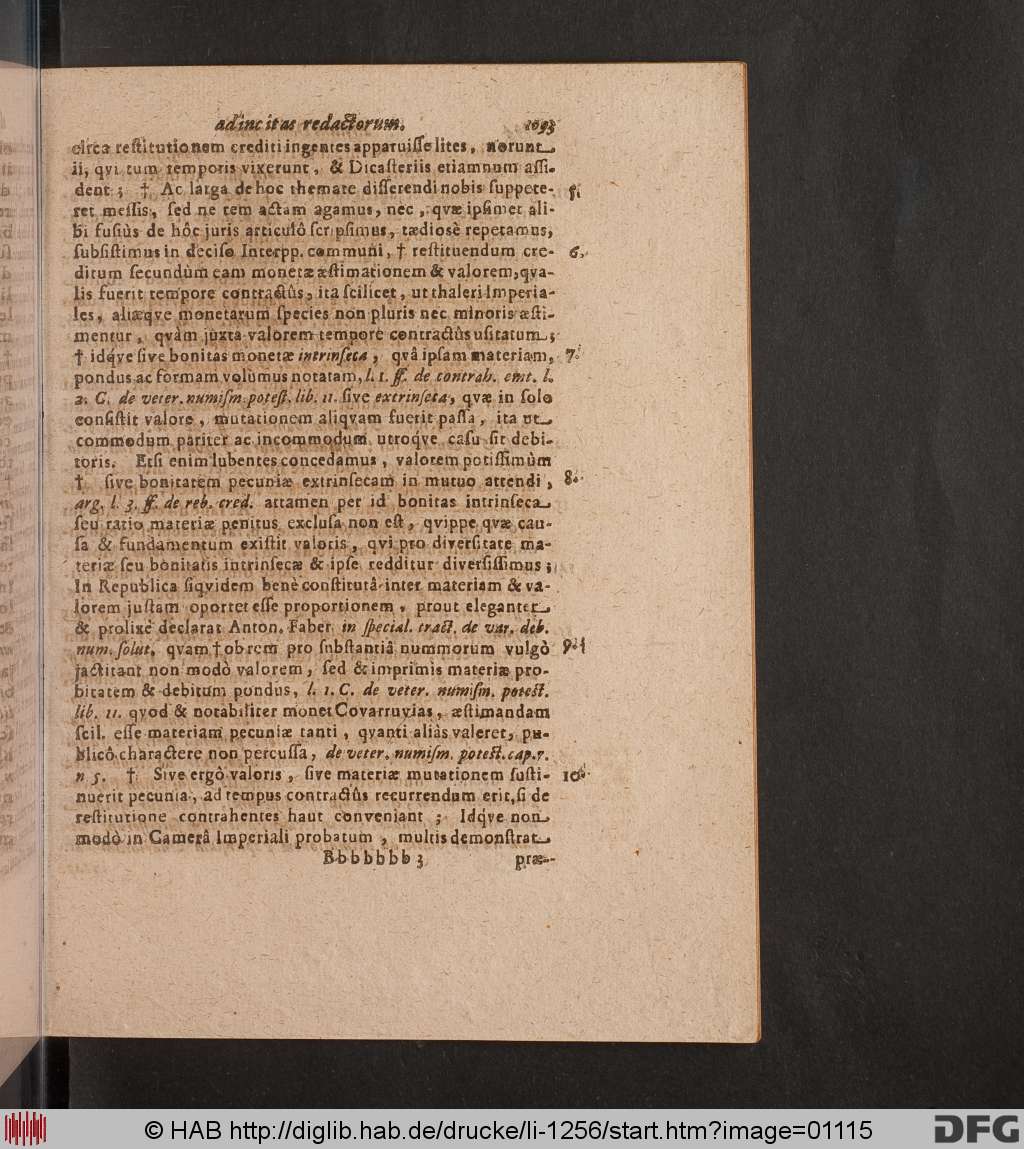 adincitas redactorum. 1093
circa reſtitutionem crediti ingentes apparuiſſe lites, norunt
ii, qvi tum temporis vixerunt, & Dicaſteriis etiamnum aſſi-
dent; † Ac larga de hoc themate diſſerendi nobis ſuppete- 5.
ret meſſis, ſed ne rem actam agamus, nec, qvæ ipſimet ali-
bi fuſiùs de hôc juris articulô ſcripſimus, tædiosè repetamus,
ſubſiſtimus in deciſo Interpp. communi, † reſtituendum cre- 6.
ditum ſecundùm eam monetæ æſtimationem & valorem, qva-
lis fuerit tempore contractûs, ita ſcilicet, ut thaleri Imperia-
les, aliæqve monetarum ſpecies non pluris nec minoris æſti-
mentur, qvàm juxta valorem tempore contractûs uſitatum;
† idq́ve ſive bonitas monetæ intrinſeca, qvâ ipſam materiam, 7.
pondus ac formam volumus notatam, l. 1. ff. de contrah. emt. l.
2. C. de veter. numiſm. poteſt. lib. 11. ſive extrinſeta, qvæ in ſolo
conſiſtit valore, mutationem aliqvam fuerit paſſa, ita ut
commodum pariter ac incommodum utroqve caſu ſit debi-
toris. Etſi enim lubentes concedamus, valorem potiſſimùm
† ſive bonitatem pecuniæ extrinſecam in mutuo attendi, 8.
arg. l. 3. ff. de reb. cred. attamen per id bonitas intrinſeca
ſeu ratio materiæ penitus excluſa non eſt, qvippe qvæ cau-
ſa & fundamentum exiſtit valoris, qvi pro diverſitate ma-
teriæ ſeu bonitatis intrinſecæ & ipſe redditur diverſiſſimus;
In Republica ſiqvidem benè conſtitutâ inter materiam & va-
lorem juſtam oportet eſſe proportionem, prout eleganter
& prolixè declarat Anton. Faber in ſpecial. tract. de var. deb.
num. ſolut. qvam † ob rem pro ſubſtantiâ nummorum vulgò 9.
jactitant non modò valorem, ſed & imprimis materiæ pro-
bitatem & debitum pondus, l. 1. C. de veter. numiſm. poteſt.
lib. 11. qvod & notabiliter monet Covarruvias, æſtimandam
ſcil. eſſe materiam pecuniæ tanti, qvanti aliàs valeret, pu-
blicô charactere non percuſſa, de veter. numiſm. poteſt. cap. 7.
n 5. † Sive ergô valoris, ſive materiæ mutationem ſuſti- 10.
nuerit pecunia, ad tempus contractûs recurrendum erit, ſi de
reſtitutione contrahentes haut conveniant; Idq́ve non
modò in Camerâ Imperiali probatum, multis demonſtrat
Bbbbbbb 3 præ-
© HAB http://diglib.hab.de/drucke/li-1256/start.htm?image=01115
DFG